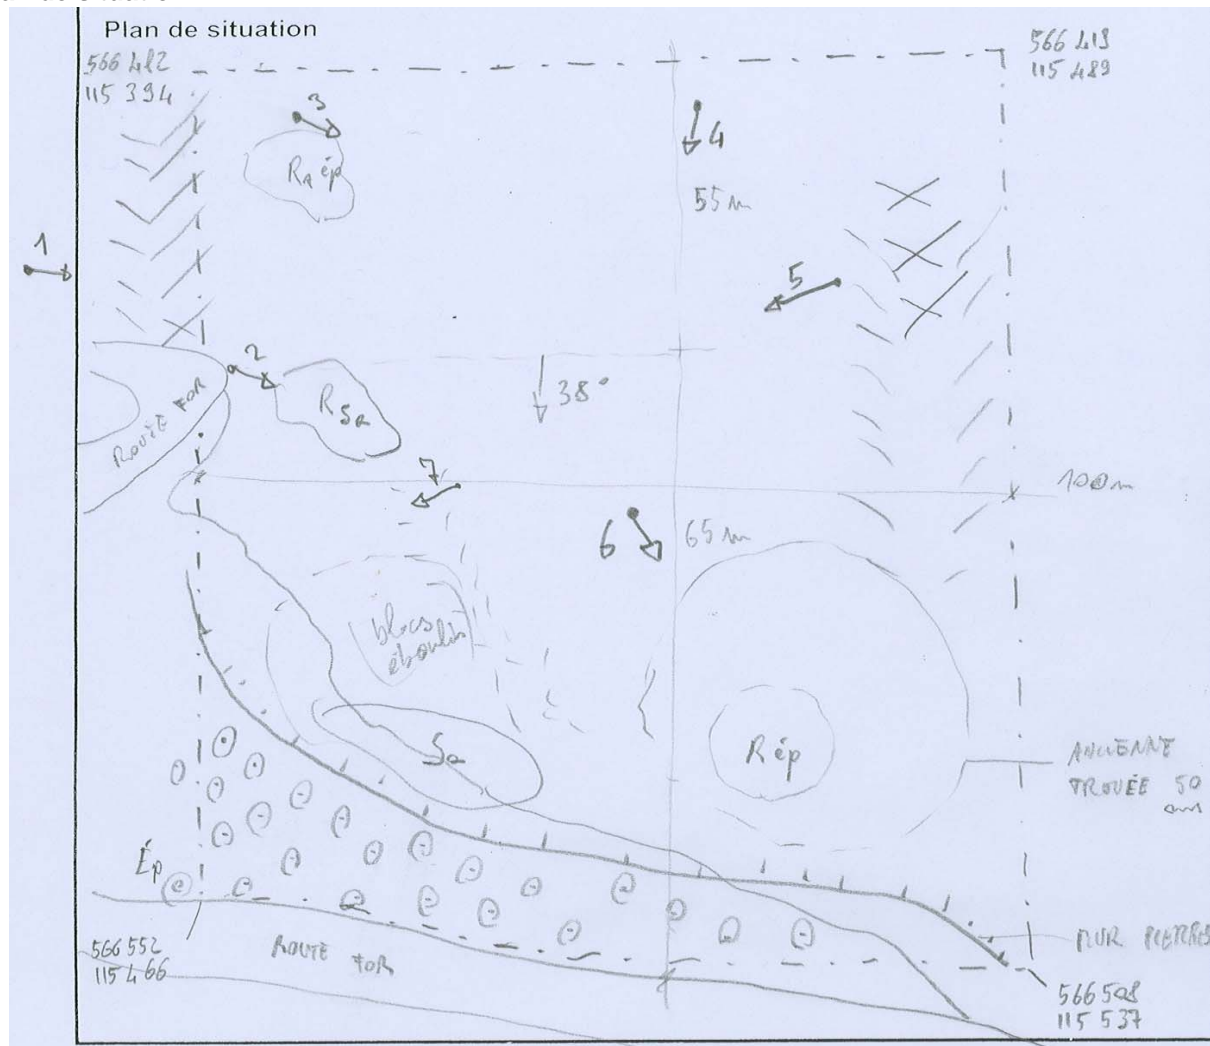 Plan de situation
566 412
115 394
566 419
115 489
3
Ra ép
4
55 m
1
5
2
ROUTE FOR
R Sa
38°
7
100 m
6
65 m
blocs
éboulés
Sa
R ép
ANCIENNE
TROUÉE 50
ans
Ép
566 552
115 466
ROUTE FOR
MUR PIERRES
566 508
115 537